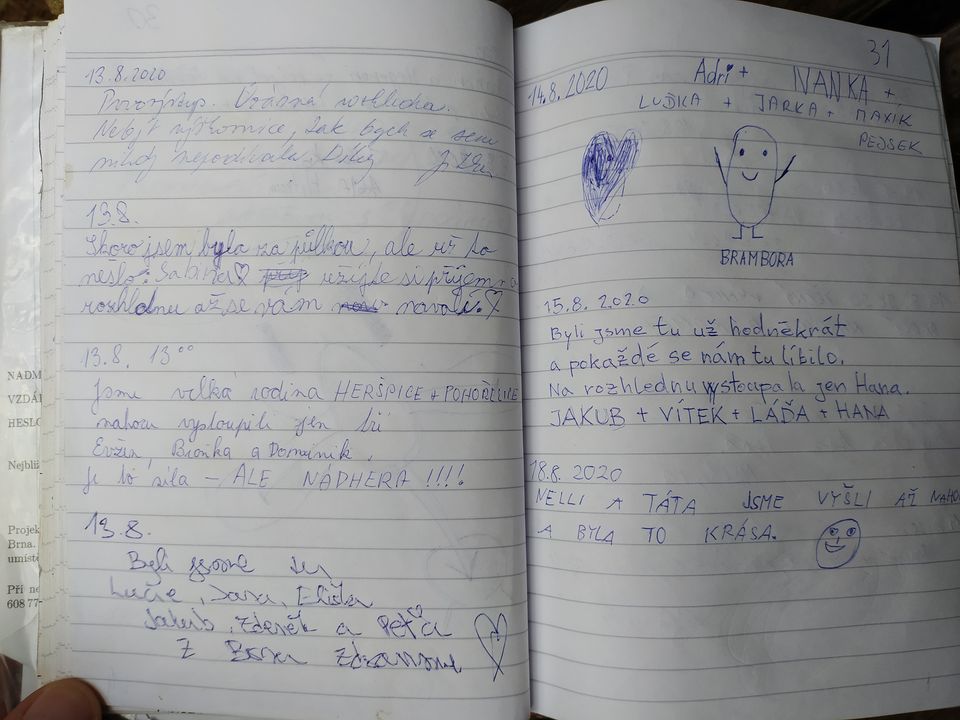 13.8.2020
Úžasná rozhledna.
Nebýt výkonnice, tak bych se sem
nikdy nepodívala. Díky
13.8.
Skoro jsem byla za půlkou, ale už to
nešlo. Sabina užijte si příjemnou
rozhlednu ať se vám
13.8. 13⁰⁰
Jsme velká rodina HERŠPICE + POHOŘELICE
nahoru vystoupili jen tři
Evžen, Bionka a Dominik.
je to síla – ALE NÁDHERA !!!!
13.8.
Byli jsme zde
Lucie, Jana, Eliška
Jakub, Zdeněk a Peťa
Z Brna Zdravíme
31
14.8.2020 Adri + IVANKA +
LUĎKA + JARKA + MAXÍK
PEJSEK
BRAMBORA
15.8. 2020
Byli jsme tu už hodněkrát
a pokaždé se nám tu líbilo.
Na rozhlednu vystoupala jen Hana.
JAKUB + VÍTEK + LÁĎA + HANA
18.8.2020
NELLI A TÁTA JSME VYŠLI AŽ NAHO
A BYLA TO KRÁSA.
NADM
VZDÁ
HESLO
Nejbliž
Projek
Brna.
umístě
Při ne
608 77